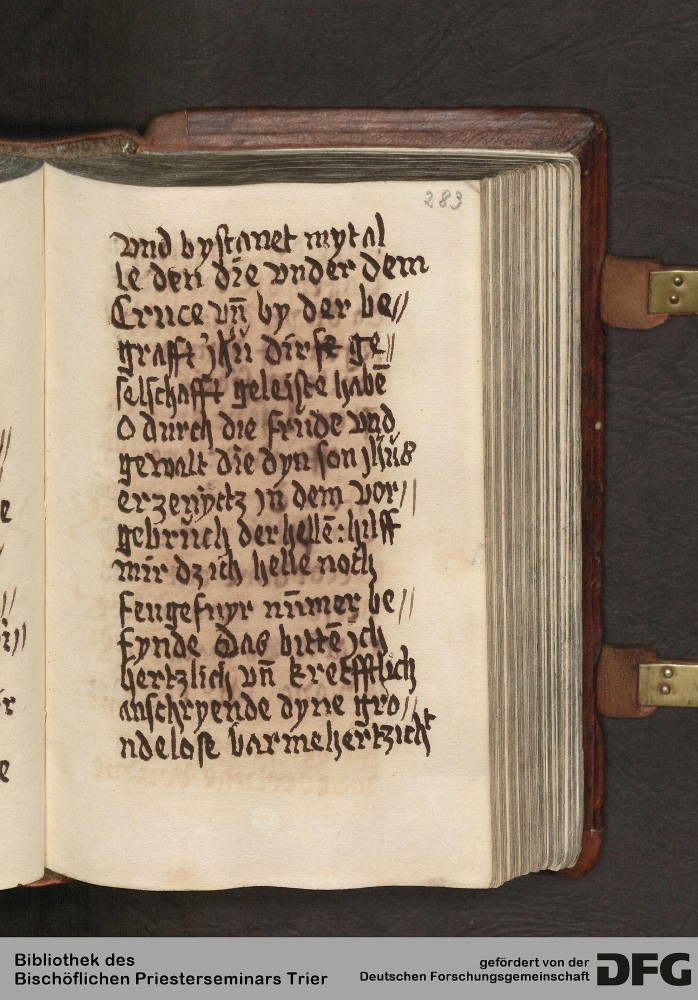 283
vnd bystanet mytal
le den die vnder dem
Cruce vn̄ by der be//
grafft jhū dirst ge//
selschafft geleiste habē
O durch die frude vnd
gewalt die dyn son jhūs
erzenyctz jn dem vor//
gebruch der hellē: hilff
mir dz ich helle noch
fengefuyr nūmer be//
fynde Das bittē jch
hertzlich vn̄ krefftlich
anschryende dyne gro//
ndelose barmehertzicht
Bibliothek des
Bischöflichen Priesterseminars Trier
gefördert von der
Deutschen Forschungsgemeinschaft
DFG